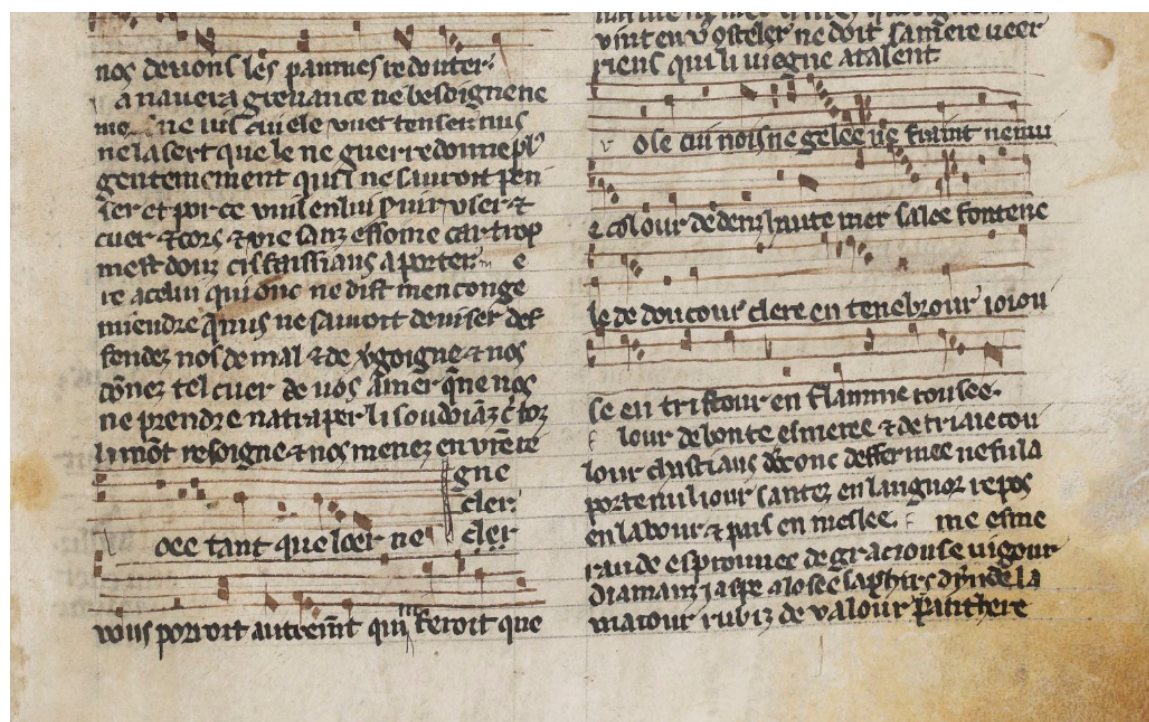 nos deuons les paumes redouter.
a nauera greuance ne besoigne ne
ne uis cui ele vuet tenser nus
ne la sert que le ne guerredonne pl9
gentemement quil ne sauroit pen
ser et por ce vuil en lui seruir vser ⁊
cuer ⁊ cors ⁊ vie sanz essoine car trop
mest douz cis faissiaus a porter. e
re a celui qui onc ne dist menconge
miendre q̄ nus ne sauroit deuiser def
fendez nos de mal ⁊ de ṽgoigne ⁊ nos
dōnez tel cuer de uos amer q̄ ne nos
ne prendre natraper li
li mōt resoigne ⁊ nos menez en vr̄e re
gne
cler.
cler
oee tant que loer ne
vous porroit autremt̄ qui feroit que
vint en v̄ osteler ne doit sa mere ueer
riens qui li viegne a talent.
ose cui nois ne gelee ne fraint ne mu
e colour dedenz haute mer salee fontene
le de doucour clere en tenebrour ioiou
se en tristour en flamme rousee.
lour de bonte esmeree ⁊ de triaie cou
lour chastiaus donc deffermee ne fu la
porte nul iour santez en languor repos
en labour ⁊ pais en meslee. me esme
raude esprouuee de graciouse uigour
diamanz iaspe alosee saphirs dynde la
maiour rubiz de valour panthere